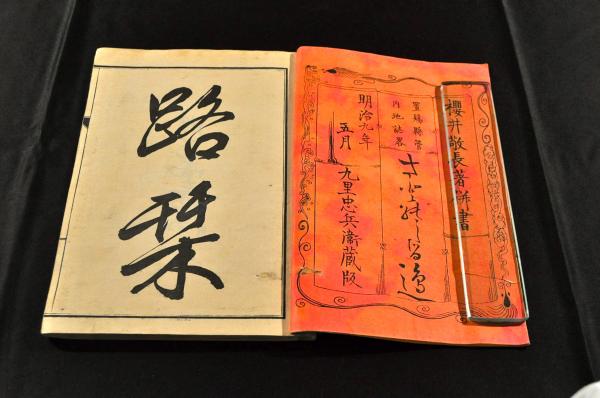 櫻井敬長著併書
置賜縣管
内地誌畧
明治九年
五月
九里忠兵衛蔵版
路栞